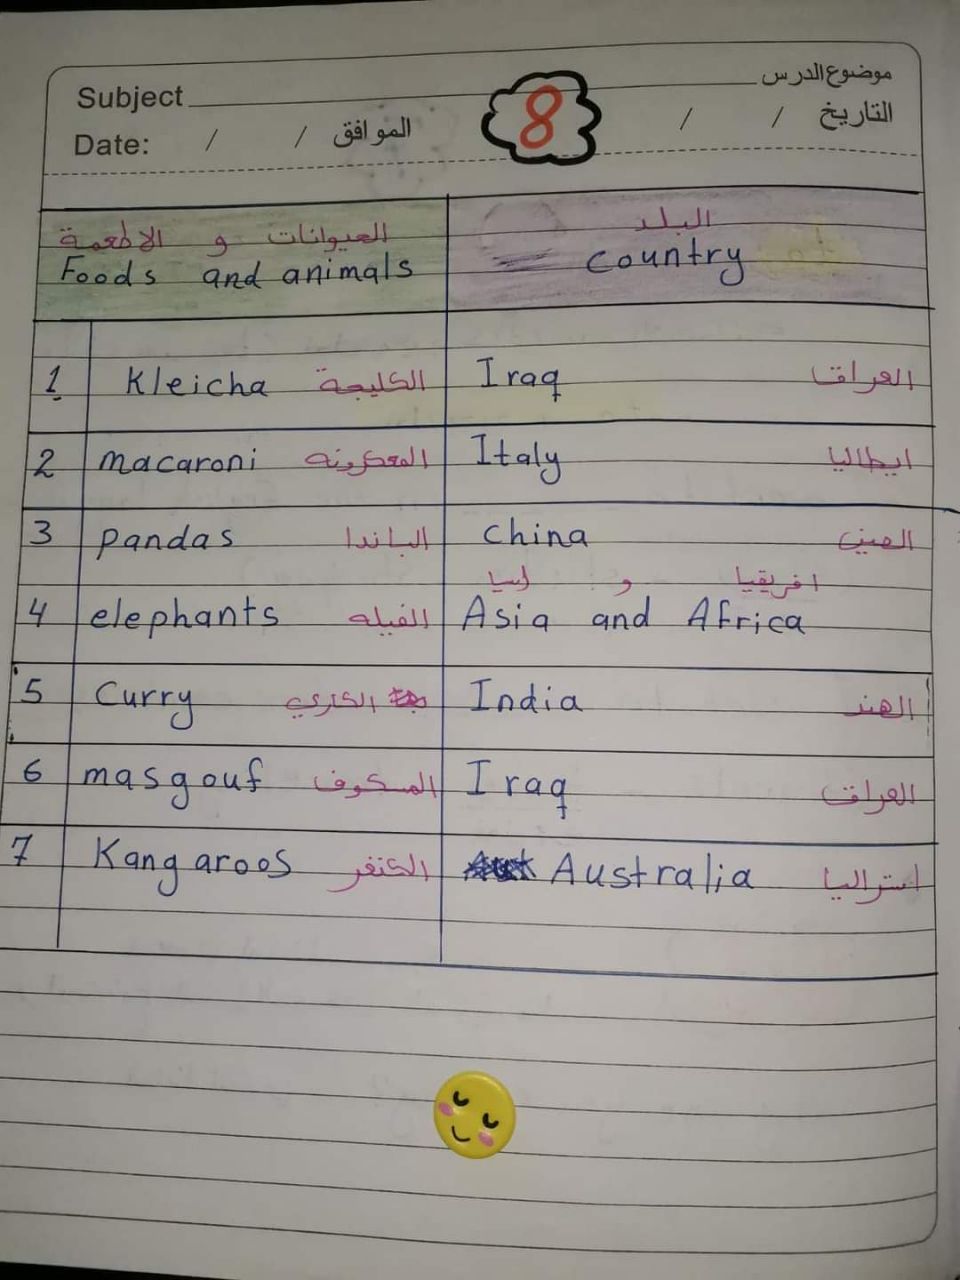 Subject موضوع الدرس
8
Date: / / الموافق / / التاريخ
الحيوانات و الاطعمة البلد
Foods and animals country
1 Kleicha الكليجة Iraq العراق
2 macaroni المعكرونه Italy ايطاليا
3 pandas الباندا china الصين
اسيا و افريقيا
4 elephants الفيله Asia and Africa
5 Curry الكاري India الهند
6 masgouf المسكوف Iraq العراق
7 Kangaroos الكنغر Australia استراليا